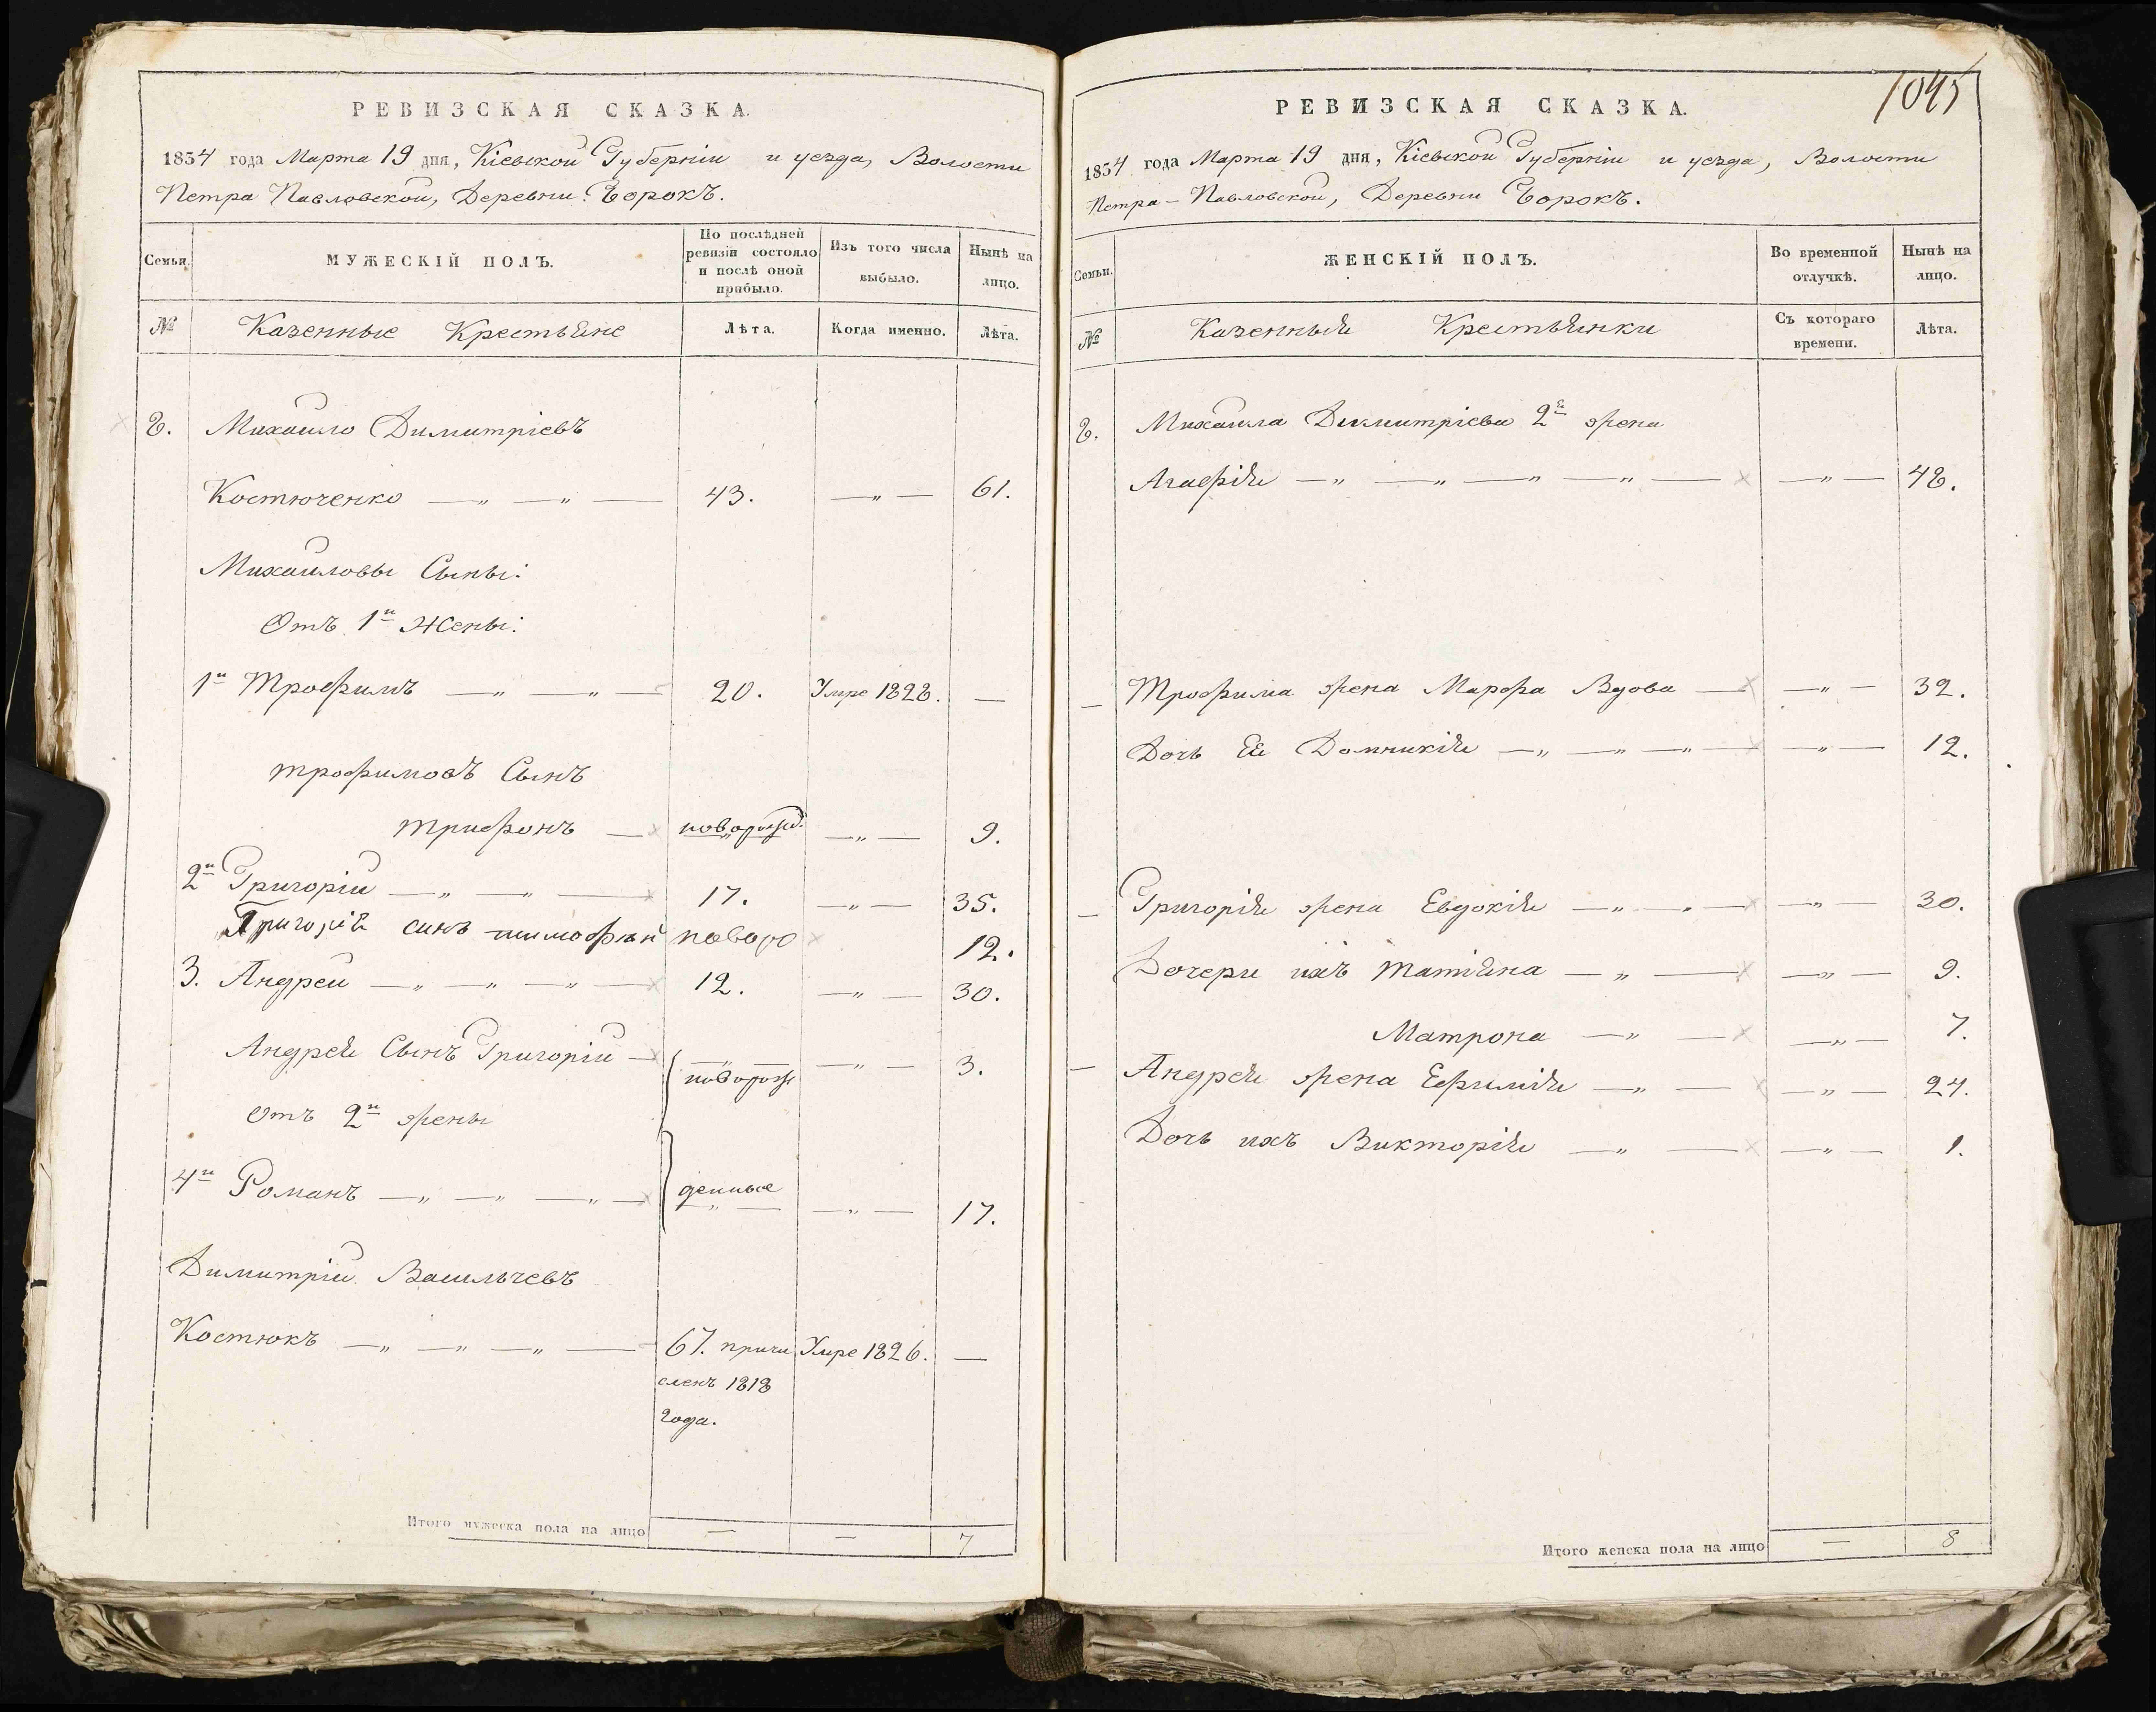 РЕВИЗСКАЯ СКАЗКА.
1834 года Марта 19 дня, Кіевской Губерніи и уезда, Волости
Петра Павловской, Деревни Борокъ.
Семьи.
МУЖЕСКІЙ ПОЛЪ.
По послѣдней ревизіи состояло и послѣ оной прибыло.
Изъ того числа выбыло.
Нынѣ на лицо.
№
Казенные Крестьяне
Лѣта.
Когда именно.
Лѣта.
8. Михайло Димитріевъ
Костюченко — „ — „ — 43. — „ — 61.
Михайловы Сыны:
Отъ 1й Жены:
1й Трофимъ — „ — „ — 20. Умре 1828. —
трофимовъ Сынъ
трифонъ — поворожд. — „ — 9.
2й Григорій — „ — „ — 17. — „ — 35.
Григорія синъ тимофѣй новоро 12.
3. Андрей — „ — „ — „ — 12. — „ — 30.
Андрея Сынъ Григорій — новорож — „ — 3.
Отъ 2й жены
4й Романъ — „ — „ — „ — денные — „ — 17.
Димитрій Васильчевъ
Костюкъ — „ — „ — „ — 67. причи Умре 1826. —
сленъ 1818
года.
Итого мужеска пола на лицо — — 7
1045
РЕВИЗСКАЯ СКАЗКА.
1834 года Марта 19 дня, Кіевской Губерніи и уезда, Волости
Петра-Павловской, Деревни Борокъ.
Семьи.
ЖЕНСКІЙ ПОЛЪ.
Во временной отлучкѣ.
Нынѣ на лицо.
№
Казенныя Крестьянки
Съ котораго времени.
Лѣта.
8. Михайла Димитріева 2я жена
Агафія — „ — „ — „ — „ — — „ — 48.
— Трофима жена Марфа Вдова — — „ — 32.
Дочь Ея Домникія — „ — „ — — „ — 12.
— Григорія жена Евдокія — „ — „ — — „ — 30.
Дочери ихъ татіяна — „ — — „ — 9.
Матрона — „ — — „ — 7.
— Андрея жена Ефимія — „ — — „ — 24.
Дочь ихъ Викторія — „ — — „ — 1.
Итого женска пола на лицо — 8